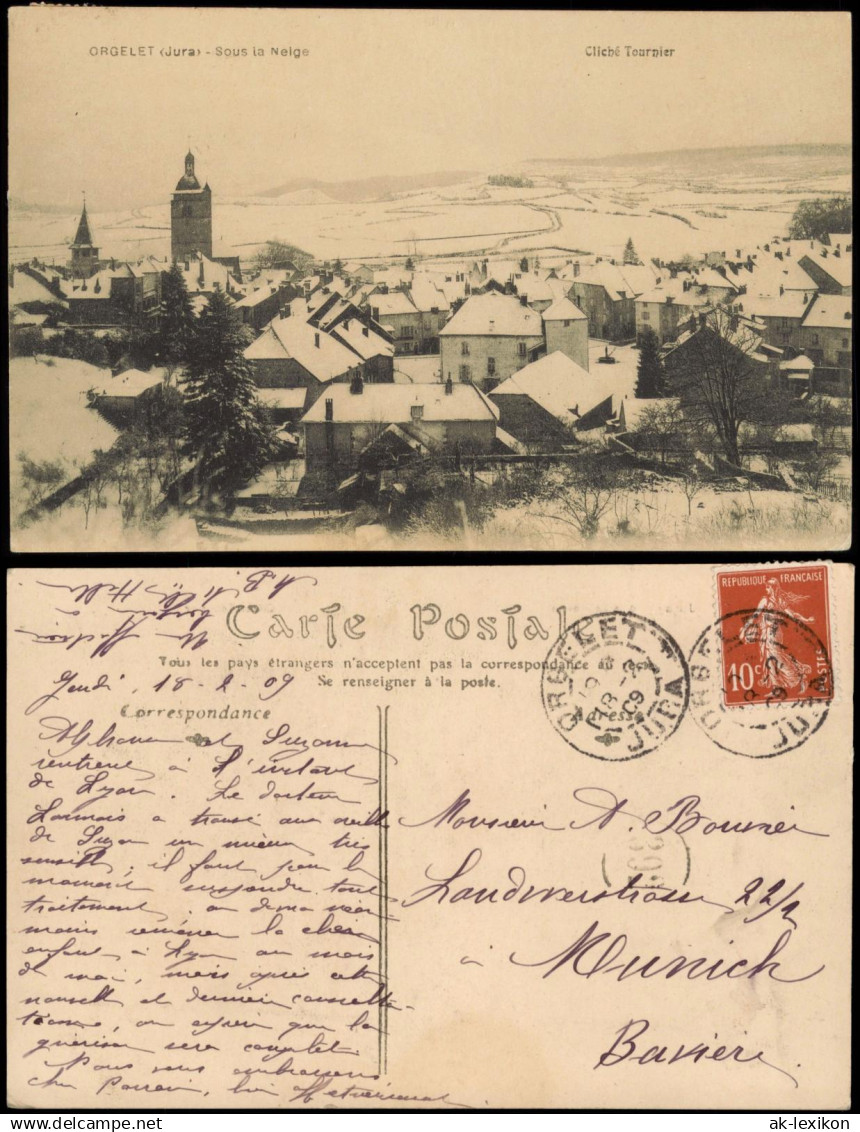 ORGELET (Jura) - Sous la Neige
Cliché Tournier
Carte Postale
Tous les pays étrangers n'acceptent pas la correspondance au recto
Se renseigner à la poste.
RÉPUBLIQUE FRANÇAISE
10c
POSTES
ORGELET
JURA
ORGELET
JURA
Jeudi, 18-2-09
Correspondance
Adresse
Alphonse et Suzanne
rentrent à l'instant
de Lyon. Le docteur
Lannois a trouvé aux oreilles
de Suzon un mieux très
sensible; il faut pour le
moment suspendre tout
traitement; on devra néan
moins ramener la chère
enfant à Lyon au mois
de mai, mais après cette
nouvelle et dernière consulta-
tion, on espère que la
guérison sera complète.
Nous vous embrassons
cher Parrain, bien affectueusement
Monsieur A. Bouvier
Landwerstrasse 22/2
à Munich
Bavière
ak-lexikon